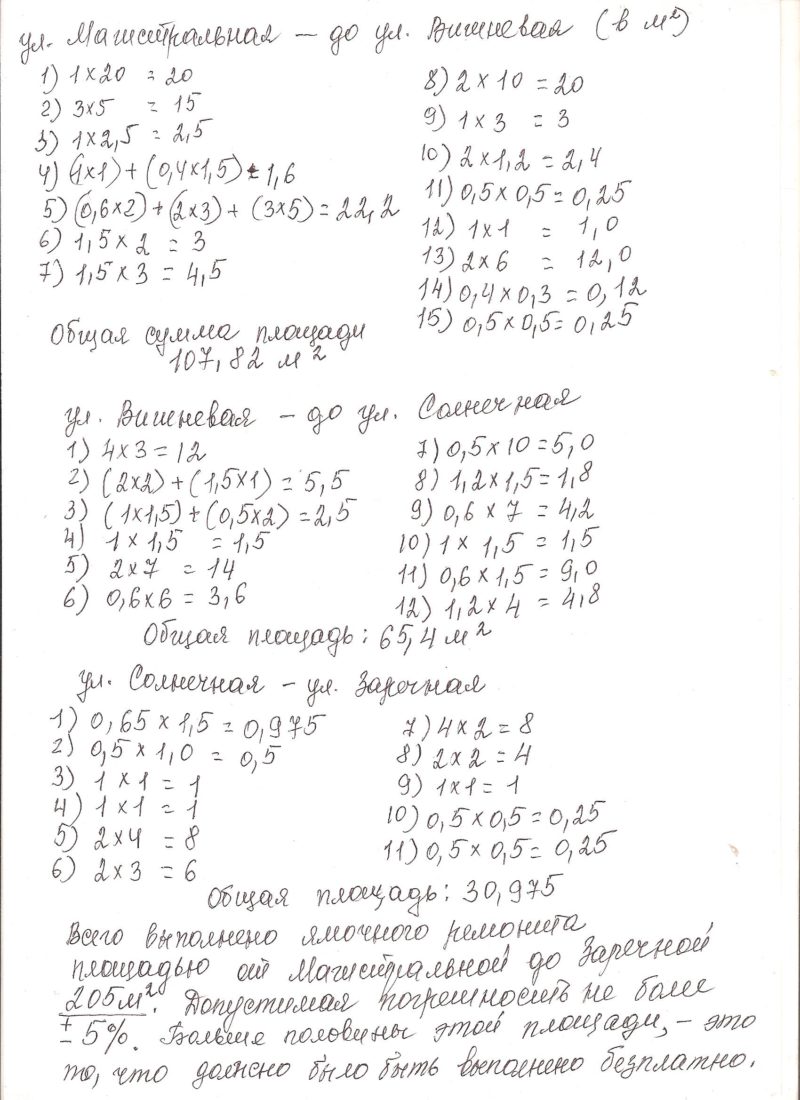 ул. Магистральная – до ул. Вишневая (в м²)
1) 1×20 = 20
2) 3×5 = 15
3) 1×2,5 = 2,5
4) (1×1) + (0,4×1,5) = 1,6
5) (0,6×2) + (2×3) + (3×5) = 22,2
6) 1,5×2 = 3
7) 1,5×3 = 4,5
8) 2×10 = 20
9) 1×3 = 3
10) 2×1,2 = 2,4
11) 0,5×0,5 = 0,25
12) 1×1 = 1,0
13) 2×6 = 12,0
14) 0,4×0,3 = 0,12
15) 0,5×0,5 = 0,25
Общая сумма площади
107,82 м²
ул. Вишневая – до ул. Солнечная
1) 4×3 = 12
2) (2×2) + (1,5×1) = 5,5
3) (1×1,5) + (0,5×2) = 2,5
4) 1×1,5 = 1,5
5) 2×7 = 14
6) 0,6×6 = 3,6
7) 0,5×10 = 5,0
8) 1,2×1,5 = 1,8
9) 0,6×7 = 4,2
10) 1×1,5 = 1,5
11) 0,6×1,5 = 9,0
12) 1,2×4 = 4,8
Общая площадь: 65,4 м²
ул. Солнечная – ул. Заречная
1) 0,65×1,5 = 0,975
2) 0,5×1,0 = 0,5
3) 1×1 = 1
4) 1×1 = 1
5) 2×4 = 8
6) 2×3 = 6
7) 4×2 = 8
8) 2×2 = 4
9) 1×1 = 1
10) 0,5×0,5 = 0,25
11) 0,5×0,5 = 0,25
Общая площадь: 30,975
Всего выполнено ямочного ремонта
площадью от Магистральной до Заречной
205 м². Допустимая погрешность не более
± 5%. Больше половины этой площади, – это
то, что должно было быть выполнено безплатно.